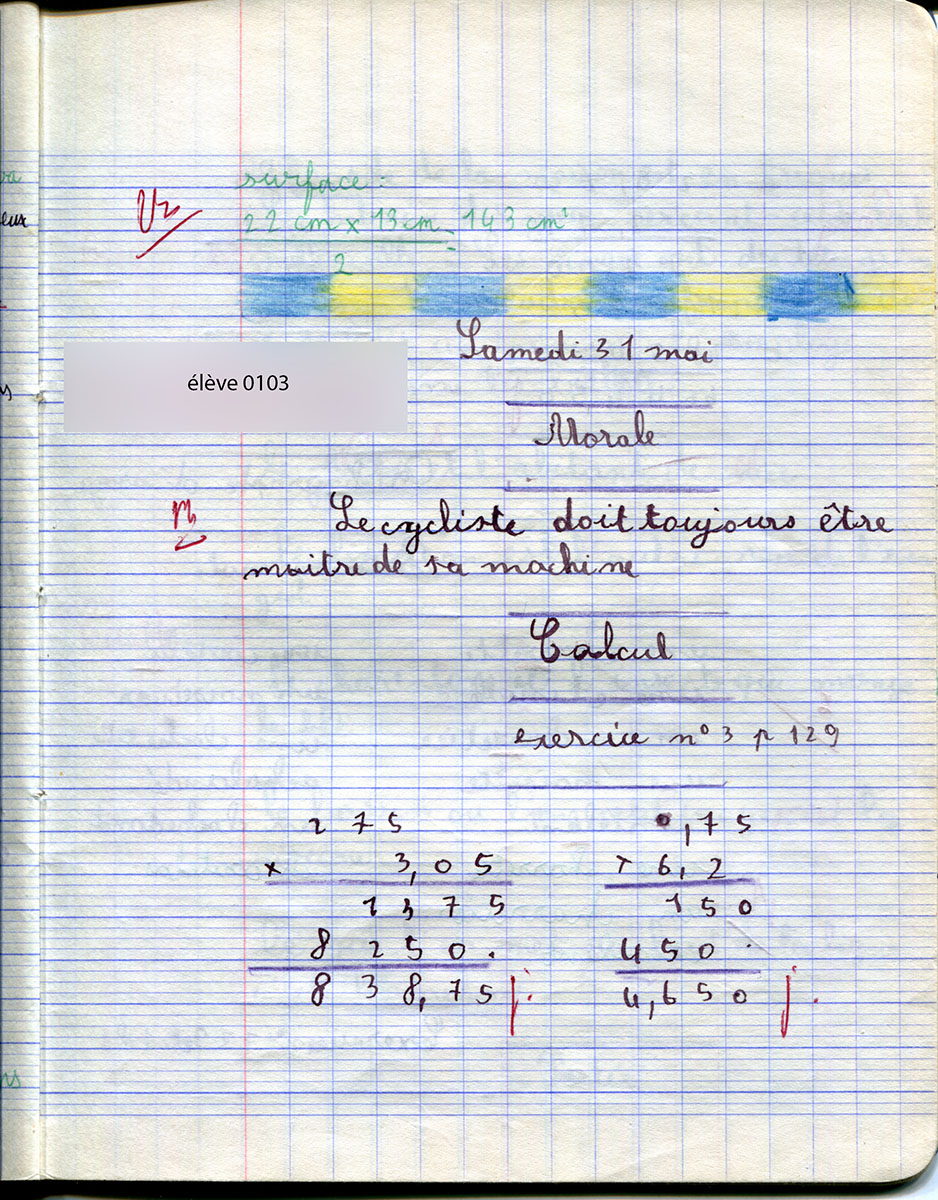 surface :
Vz
22 cm x 13 cm = 143 cm²
2
Samedi 31 mai
élève 0103
Morale
Le cycliste doit toujours être
maitre de sa machine
Calcul
exercice n° 3 p 129
2 7 5
x 3,0 5
1 3 7 5
8 2 5 0 .
8 3 8,7 5 j.
0,7 5
x 6,2
1 5 0
4 5 0 .
4,6 5 0 j.